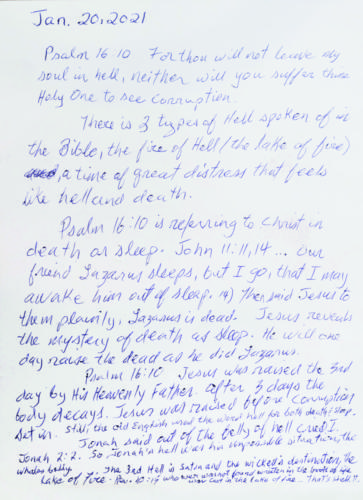 Jan. 20, 2021
Psalm 16:10 For thou will not leave my
soul in hell, neither will you suffer thine
Holy One to see corruption.
There is 3 types of Hell spoken of in
the Bible, the fire of Hell/the lake of fire)
, a time of great distress that feels
like hell and death.
Psalm 16:10 is referring to Christ in
death or sleep. John 11:11,14... our
friend Lazarus sleeps, but I go, that I may
awake him out of sleep. 14) Then said Jesus to
them plainly, Lazarus is dead. Jesus reveals
the mystery of death as sleep. He will one
day raise the dead as he did Lazarus.
Psalm 16:10 Jesus was raised the 3rd
day by His Heavenly Father. After 3 days the
body decays. Jesus was raised before corruption
set in. Still, the old English used the word hell for both death/sleep.
Jonah said out of the belly of hell cried I.
Jonah 2:2. So Jonah's hell was his impossible situation, the
whales belly. The 3rd Hell is Satan and the wicked's destination, the
lake of fire. Rev. 20:15 whoever was not found written in the book of life
was cast in the lake of fire... That's hell!!